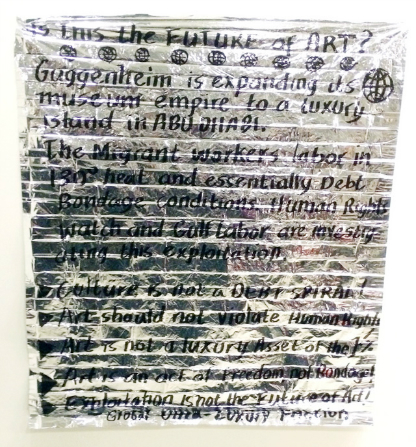 Is this the FUTURE of ART?
Guggenheim is expanding its
museum empire to a luxury
island in ABU DHABI.
The Migrant workers labor in
130° heat and essentially Debt
Bondage conditions. Human Rights
Watch and Gulf Labor are investig
ating this exploitation.
Culture is not a DEBT SPIRAL!
Art should not violate Human Rights
Art is not a luxury Asset of the 1%
Art is an act of Freedom not Bondage!
Exploitation is not the Future of Art!
Global Ultra-Luxury Faction